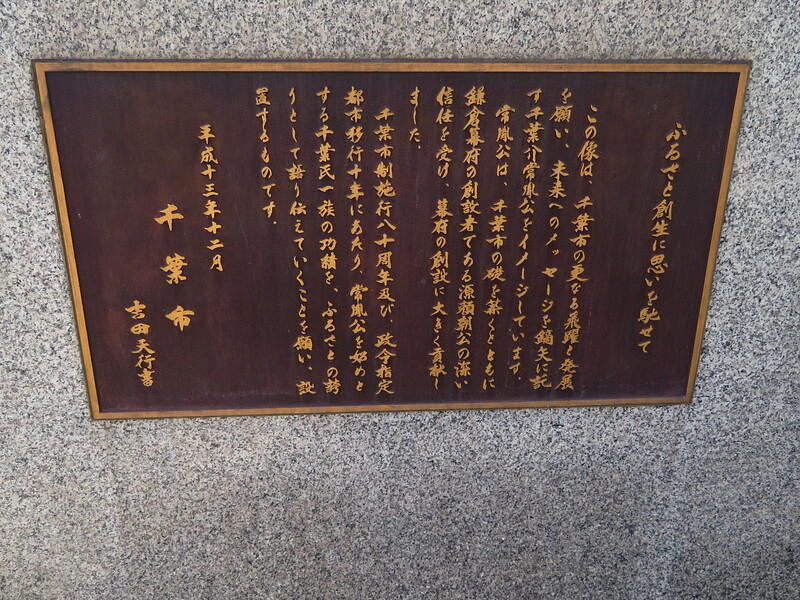 ふるさと創生に思いを馳せて
この像は、千葉市の更なる飛躍と発展
を願い、未来へのメッセージを鏑矢に託
す千葉介常胤公をイメージしています。
常胤公は、千葉市の礎を築くとともに
鎌倉幕府の創設者である源頼朝公の深い
信任を受け、幕府の創設に大きく貢献し
ました。
千葉市制施行八十周年及び、政令指定
都市移行十年にあたり、常胤公を始めと
する千葉氏一族の功績を、ふるさとの誇
りとして語り伝えていくことを願い、設
置するものです。
平成十三年十二月
千葉市
吉田天行書